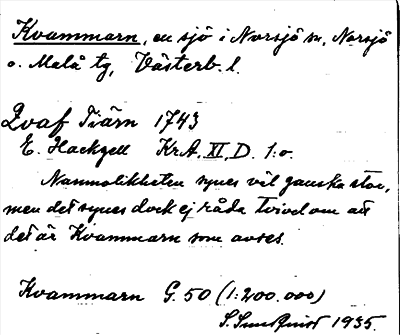 Kvammarn, en sjö i Norsjö sn, Norsjö
o. Malå tg, Västerb. l.
Qvaf Tiärn 1743
E. Hackzell KrA, XI, D. 1:o.
Namnolikheten synes väl ganska stor,
men det synes dock ej råda tvivel om att
det är Kvammarn som avses.
Kvammarn G. 50 (1:200.000)
S. 1935.